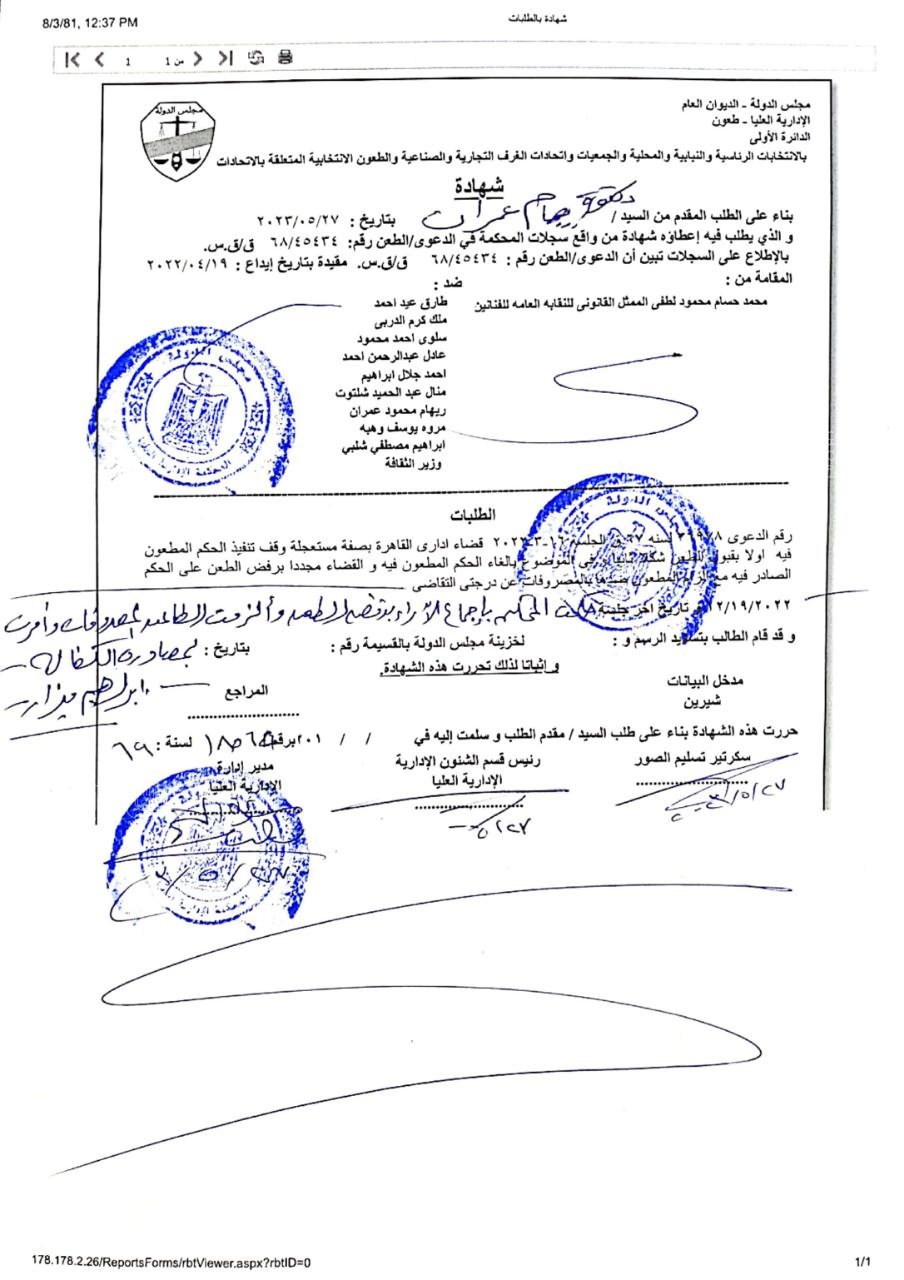 8/3/81, 12:37 PM
شهادة بالطلبات
1 من 1
مجلس الدولة
مجلس الدولة - الديوان العام
الإدارية العليا - طعون
الدائرة الأولى
بالانتخابات الرئاسية والنيابية والمحلية والجمعيات واتحادات الغرف التجارية والصناعية والطعون الانتخابية المتعلقة بالاتحادات
شهادة
بناء على الطلب المقدم من السيد / دكتورة ريهام عمران بتاريخ : ٢٠٢٣/٠٥/٢٧
و الذي يطلب فيه إعطاؤه شهادة من واقع سجلات المحكمة في الدعوى/الطعن رقم: ٦٨/٤٥٤٣٤ ق/ق.س.
بالإطلاع على السجلات تبين أن الدعوى/الطعن رقم : ٦٨/٤٥٤٣٤ ق/ق.س. مقيدة بتاريخ إيداع : ٢٠٢٢/٠٤/١٩
المقامة من :
ضد :
محمد حسام محمود لطفى الممثل القانونى للنقابه العامه للفنانين
طارق عيد احمد
ملك كرم الدربى
سلوى احمد محمود
عادل عبدالرحمن احمد
احمد جلال ابراهيم
منال عبد الحميد شلتوت
ريهام محمود عمران
مروه يوسف وهبه
ابراهيم مصطفي شلبي
وزير الثقافة
مجلس الدولة
المحكمة الإدارية العليا
الطلبات
رقم الدعوى لسنه قضاء ادارى القاهرة بصفة مستعجلة وقف تنفيذ الحكم المطعون
فيه اولا بقبول الطعن شكلا الموضوع بالغاء الحكم المطعون فيه و القضاء مجددا برفض الطعن على الحكم
الصادر فيه مع المطعون بالمصروفات عن درجتى التقاضى
١٢/١٩/٢٠٢٢ تاريخ اخر جلسة حكمت المحكمة بإجماع الآراء برفض الطعن وألزمت الطاعن المصروفات وأمرت
بمصادرة الكفالة
و قد قام الطالب بتسديد الرسم و : لخزينة مجلس الدولة بالقسيمة رقم : بتاريخ :
و إثباتا لذلك تحررت هذه الشهادة.
مدخل البيانات
المراجع
شيرين
حررت هذه الشهادة بناء على طلب السيد / مقدم الطلب و سلمت إليه في / / ٢٠١ برقم لسنة : ٦٩
سكرتير تسليم الصور
رئيس قسم الشئون الإدارية
مدير إدارة
الإدارية العليا
الإدارية العليا
178.178.2.26/ReportsForms/rbtViewer.aspx?rbtID=0
1/1